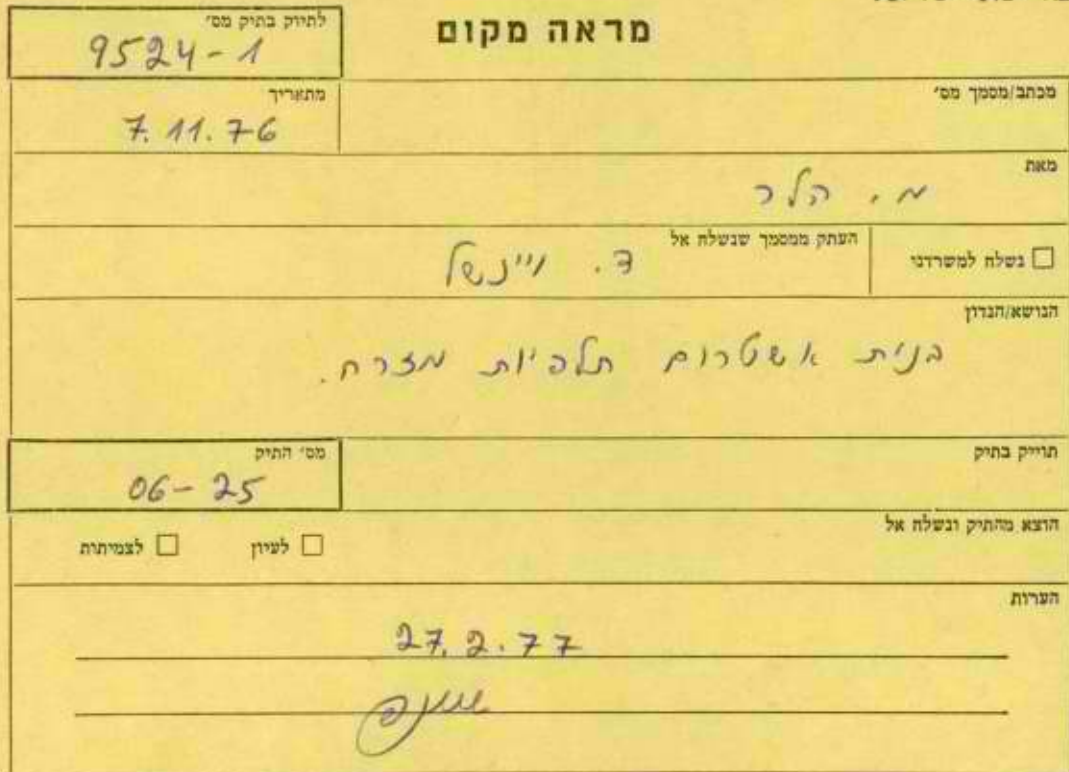 מראה מקום
לתיוק בתיק מס׳
9524-1
מכתב/מסמך מס׳
מתאריך
7.11.76
מאת
מ. הלר
□ נשלח למשרדנו
העתק ממסמך שנשלח אל
ד. ויינשל
הנושא/הנדון
בנית אשטרום תלפיות מזרח.
תוייק בתיק
מס׳ התיק
06-25
הוצא מהתיק ונשלח אל
□ לעיון □ לצמיתות
הערות
27.2.77